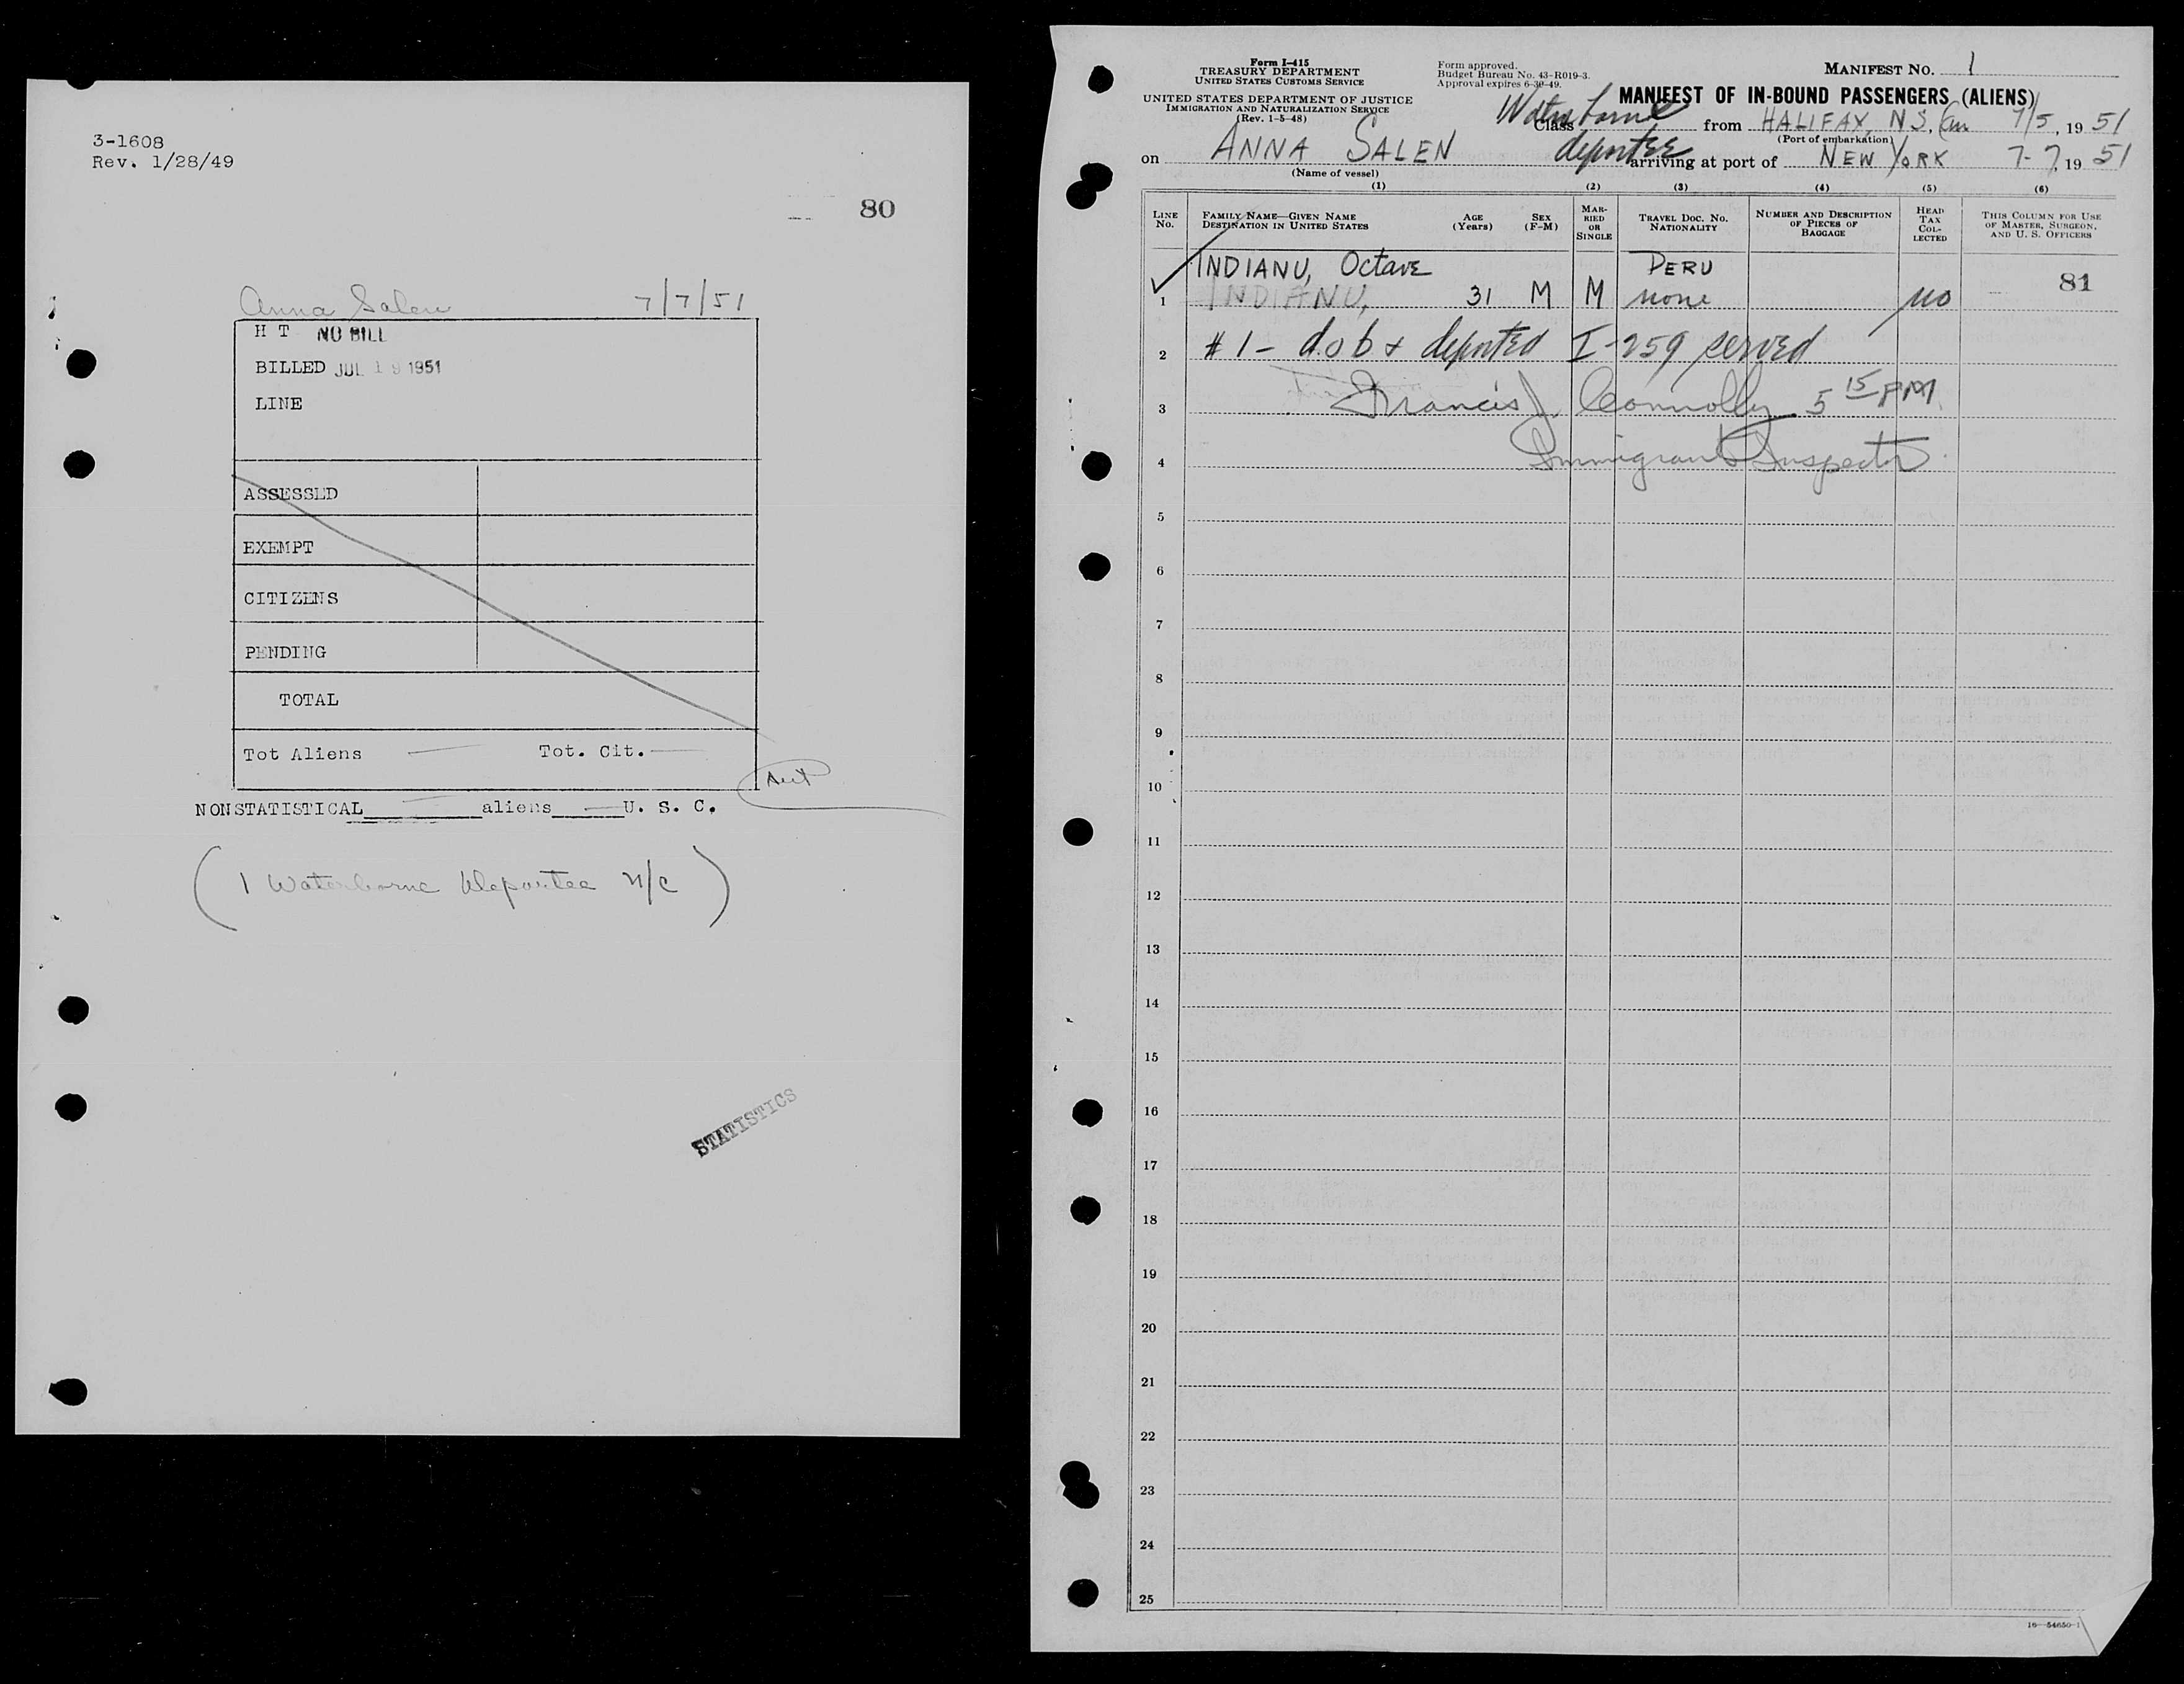 3-1608
Rev. 1/28/49
80
Anna Salen 7/7/51
H T NO BILL
BILLED JUL 19 1951
LINE
ASSESSED
EXEMPT
CITIZENS
PENDING
TOTAL
Tot Aliens — Tot. Cit. —
NONSTATISTICAL — aliens — U. S. C.
(1 Waterborne Deportee N/C)
STATISTICS
Form I-415
TREASURY DEPARTMENT
UNITED STATES CUSTOMS SERVICE
UNITED STATES DEPARTMENT OF JUSTICE
IMMIGRATION AND NATURALIZATION SERVICE
(Rev. 1-5-48)
Form approved.
Budget Bureau No. 43-R019-3.
Approval expires 6-30-49.
MANIFEST NO. 1
MANIFEST OF IN-BOUND PASSENGERS (ALIENS)
Class Waterborne deportee from HALIFAX, N.S. Can 7/5, 19 51
(Port of embarkation)
on ANNA SALEN arriving at port of NEW YORK 7-7, 19 51
(Name of vessel)
(1) (2) (3) (4) (5) (6)
LINE NO.
FAMILY NAME—GIVEN NAME
DESTINATION IN UNITED STATES
AGE (Years)
SEX (F-M)
MARRIED OR SINGLE
TRAVEL DOC. NO.
NATIONALITY
NUMBER AND DESCRIPTION OF PIECES OF BAGGAGE
HEAD TAX COLLECTED
THIS COLUMN FOR USE OF MASTER, SURGEON, AND U. S. OFFICERS
INDIANU, Octave PERU
1 INDIANU, 31 M M none no 81
2 #1- d.o.b + deported I-259 served
3 Francis J. Connolly 5 15 PM
4 Immigrant Inspector
5
6
7
8
9
10
11
12
13
14
15
16
17
18
19
20
21
22
23
24
25
16—54650-1